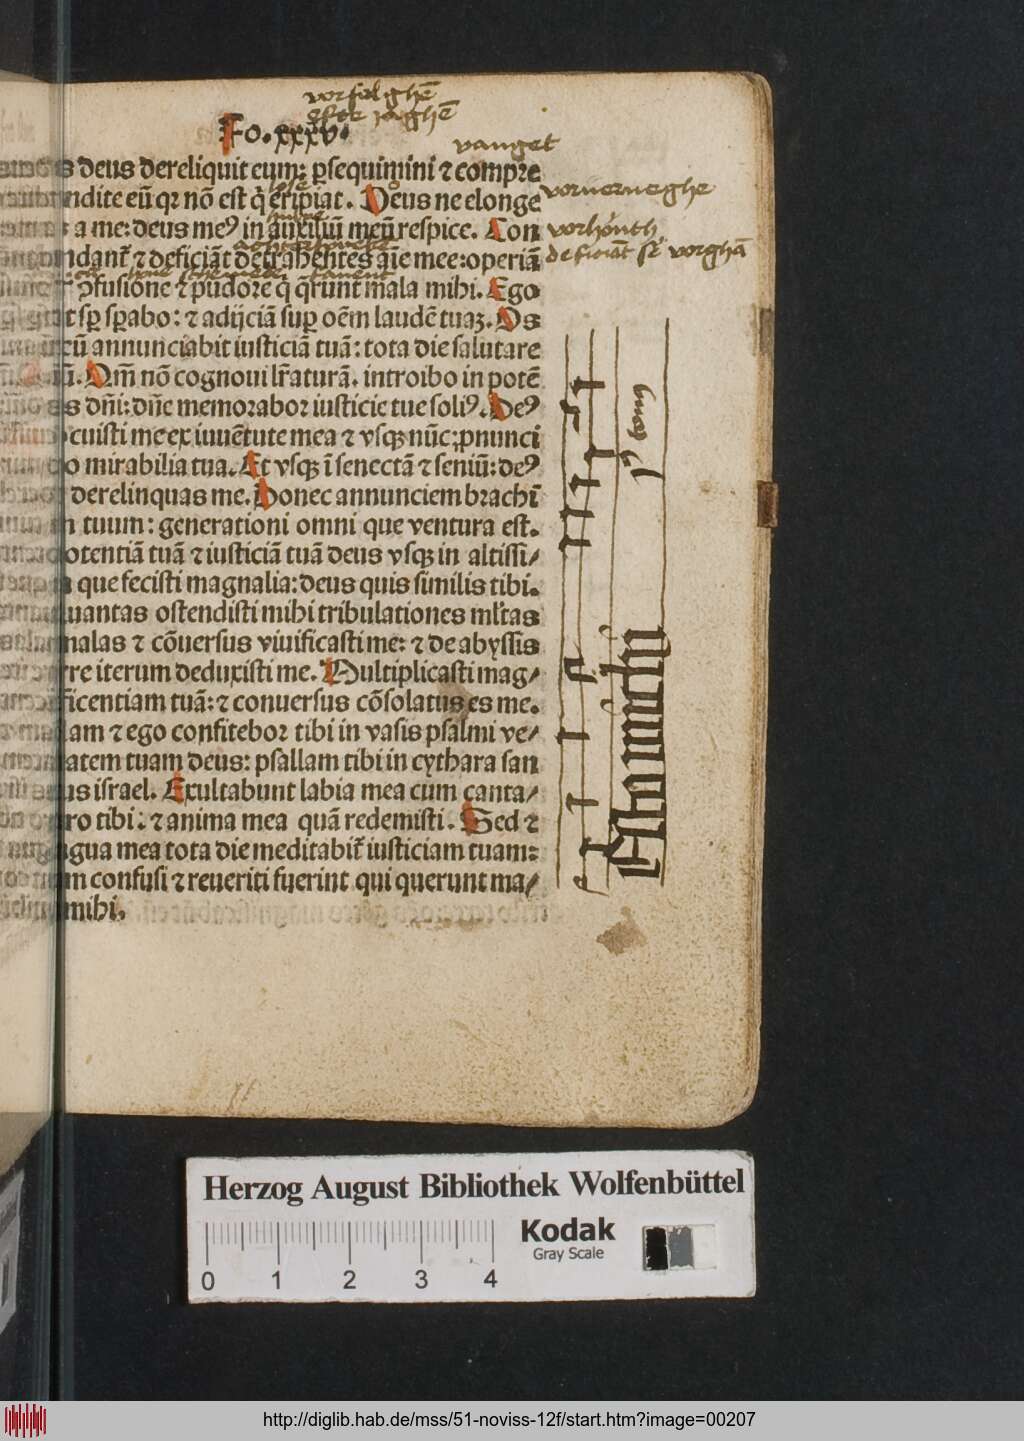 vorfolghē
efte iaghē
Fo.xxxv.
vanget
deus dereliquit eum: ꝑsequimini ⁊ compre
voruerneghe
ndite eū qꝛ nō est q̇ eripiat. Deus ne elonge
a me: deus meꝰ in auxiliū meū respice. Con
vorhonth
deficiāt sē vorghā
ndant᷑ ⁊ deficiāt detrahentes aīe mee: operiā
ꝯfusione ⁊ pudore q̄ q̄runt mala mihi. Ego
t sꝑ sꝑabo: ⁊ adijciā suꝑ oēm laudē tuaꝫ. Os
eū annunciabit iusticiā tuā: tota die salutare
ū. Qm̄ nō cognoui lr̄aturā. introibo in potē
s dn̄i: dn̄e memorabor iusticie tue soliꝰ. Deꝰ
cuisti me ex iuuētute mea ⁊ vsqꝫ nūc ꝓnunci
o mirabilia tua. Et vsqꝫ ī senectā ⁊ seniū: deꝰ
derelinquas me. Donec annunciem brachī
tuum: generationi omni que ventura est.
otentiā tuā ⁊ iusticiā tuā deus vsqꝫ in altissi/
que fecisti magnalia: deus quis similis tibi.
uantas ostendisti mihi tribulationes ml̄tas
malas ⁊ cōuersus viuificasti me: ⁊ de abyssis
rre iterum deduxisti me. Multiplicasti mag/
ificentiam tuā: ⁊ conuersus cōsolatus es me.
am ⁊ ego confitebor tibi in vasis psalmi ve/
atem tuam deus: psallam tibi in cythara san
us israel. Exultabunt labia mea cum canta/
ro tibi: ⁊ anima mea quā redemisti. Sed ⁊
gua mea tota die meditabit᷑ iusticiam tuam:
m confusi ⁊ reueriti fuerint qui querunt ma/
mihi.
Herzog August Bibliothek Wolfenbüttel
Kodak
Gray Scale
0 1 2 3 4
http://diglib.hab.de/mss/51-noviss-12f/start.htm?image=00207